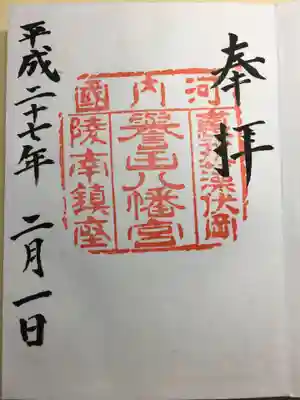 奉拝
河内國
惠我藻伏岡
譽田八幡宮
陵南鎮座
平成二十七年 二月一日